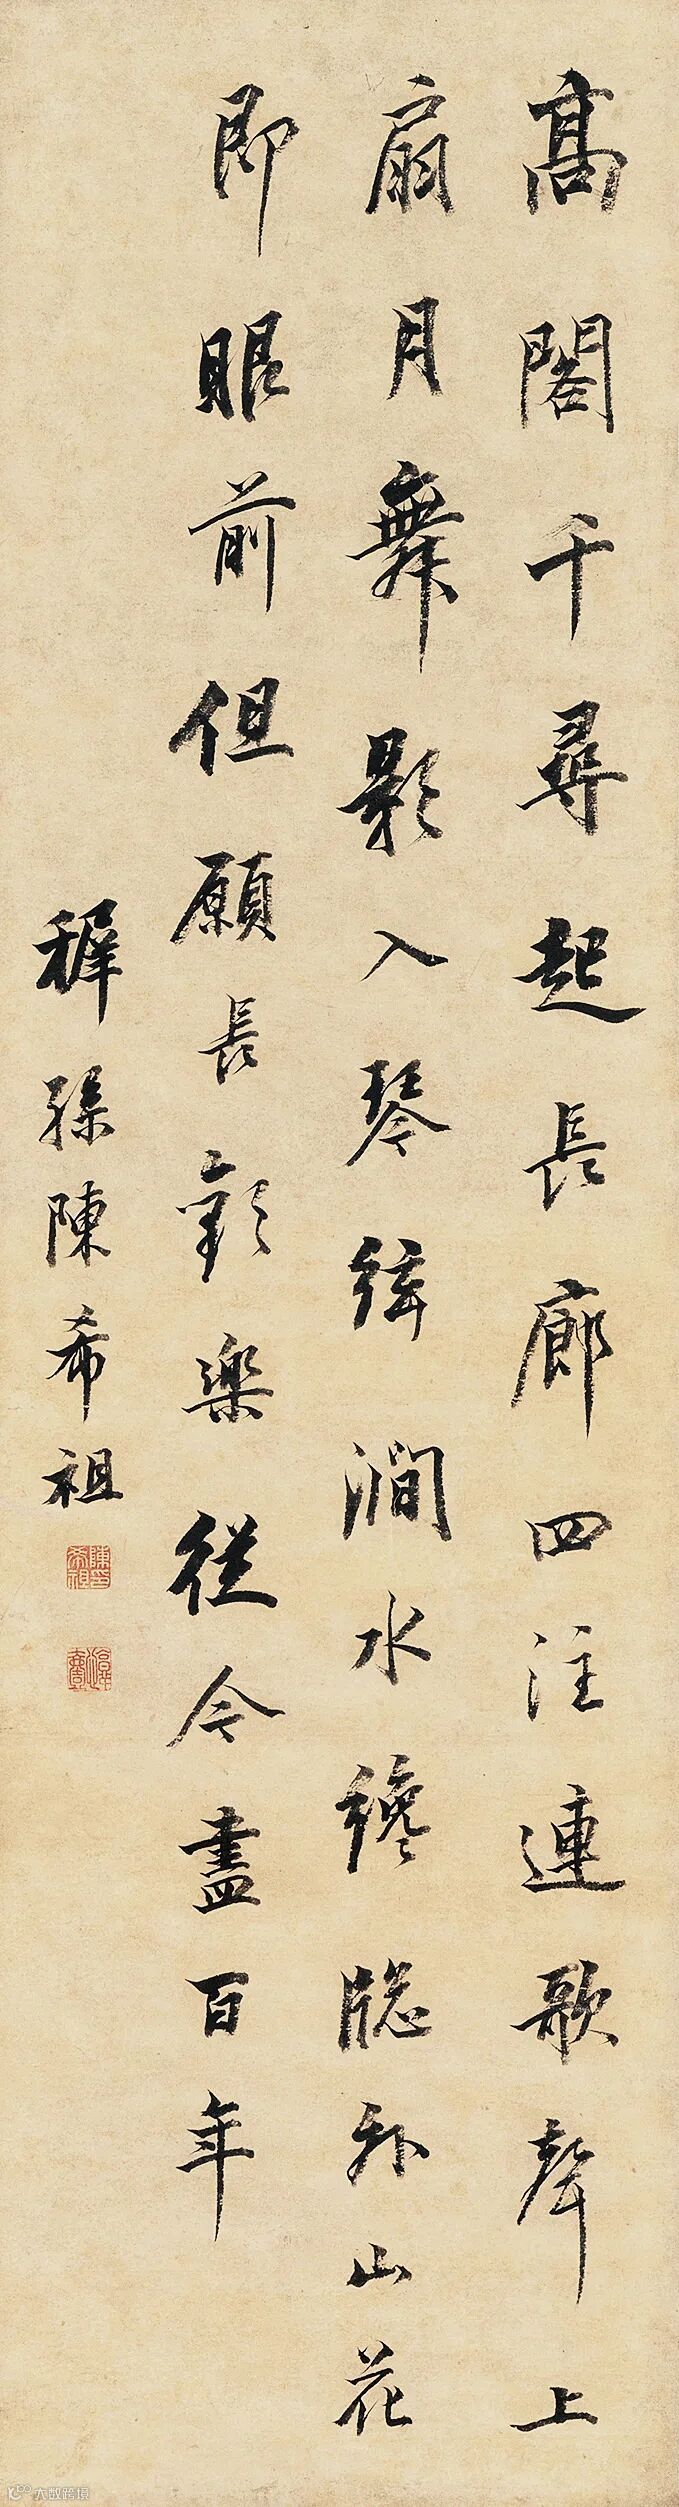 高閣千尋起長廊四注連歌聲上
扇月舞影入琴弦澗水纔牕外山花
即眼前但願長歡樂從今盡百年
穉孫陳希祖
陳希祖印
大数跨境